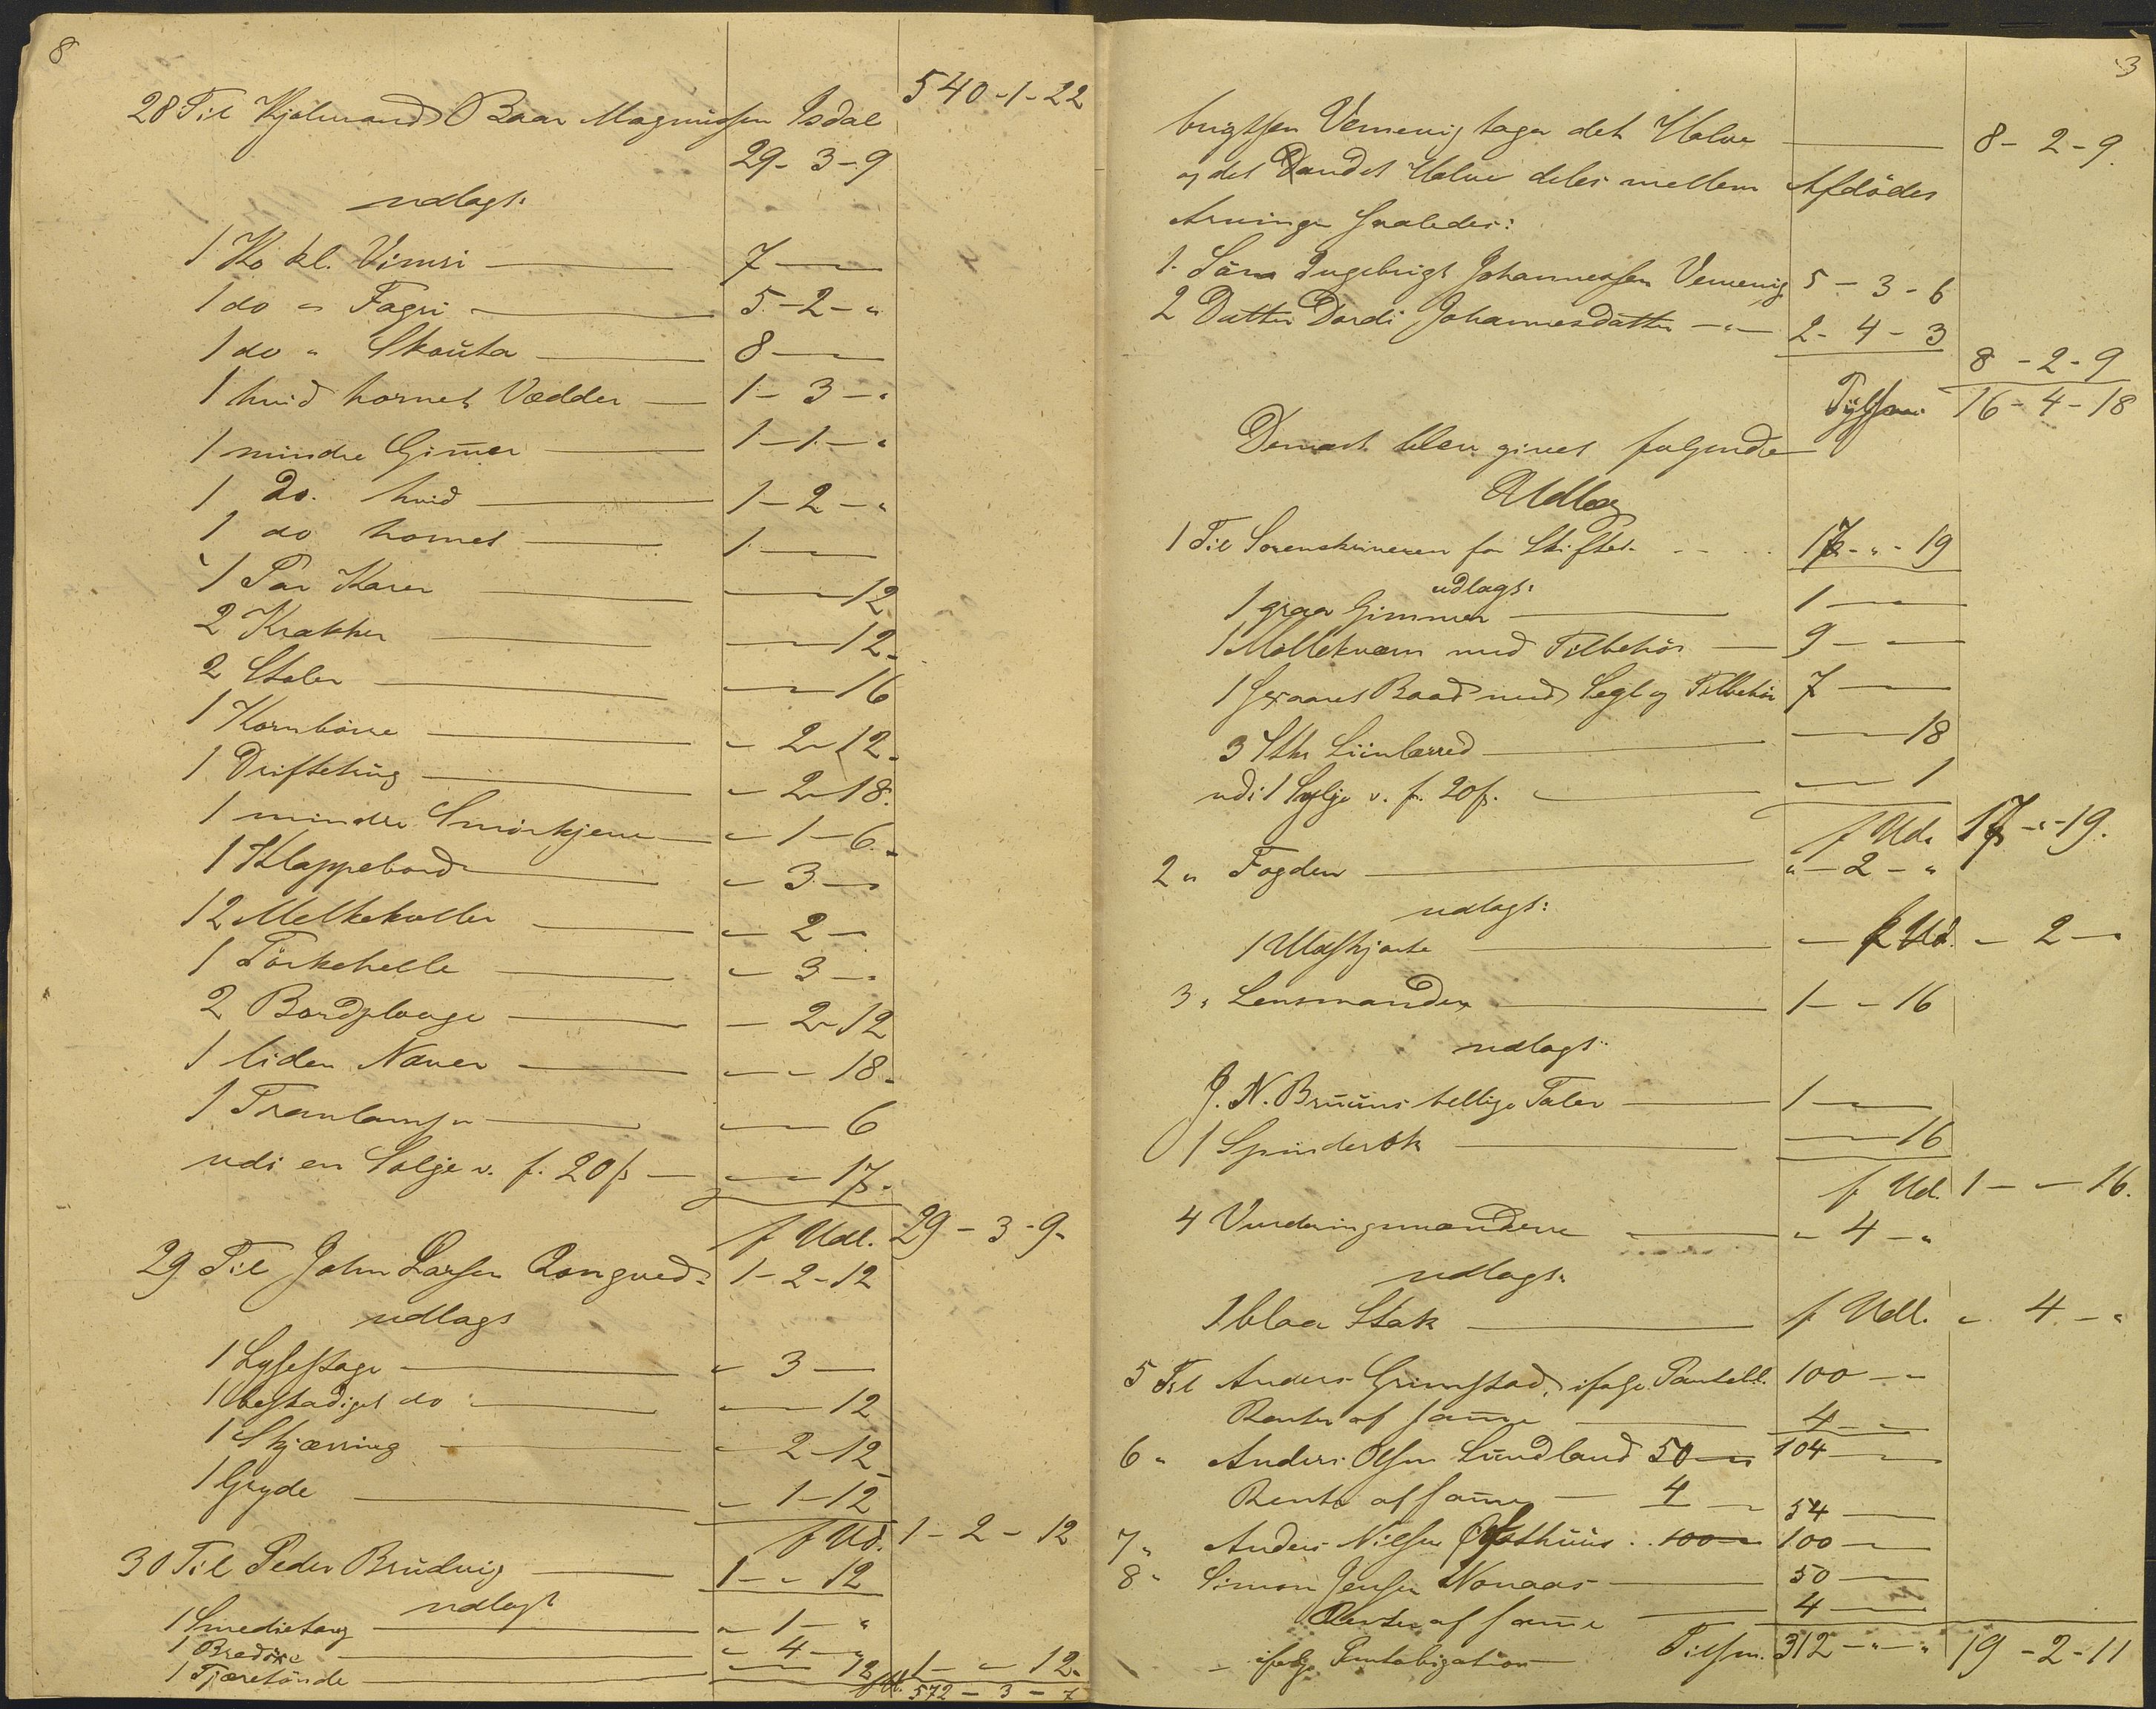 8
540-1-22
28 Til Kjølmand Baar Magnussen Isdal
29-3-9
udlagt:
1 Ko kl. Vimri — 7 —
1 do " Fagri — 5-2-"
1 do " Skauta — 8 —
1 hvid hornet Vædder — 1-3-"
1 mindre Gimer — 1-1-"
1 Do. hvid — 1-2-"
1 do hornet — 1 —
1 Par Karer — 12
2 Krakker — 12
2 Stoler — 16
1 Kornbørre — " 2-12
1 Driftetrug — " 2-18
1 mindre Smørkjerne — " 1-6
1 Klappebord — " 3 —
12 Melkekoller — " 2 —
1 Törkehelle — " 3 —
2 Bordplouge — 2-12
1 liden Naver — 18
1 Tranlampe — 6
udi en Solje v. f. 20 β — 17
f Udl. 29-3-9
29 Til John Larsen Rongved 1-2-12
udlagt
1 Lysestage — " 3 —
1 beskadiget do — 12
1 Skjærring — " 2-12
1 Gryde — 1-12
f Ud. 1-2-12
30 Til Peder Brudvig — 1-"-12
udlagt
1 Smedietang — " 1-"
1 Bredöxe — " 4-"
1 Tjæretønde — 12 1-"-12
572-3-7
3
brigtsen Vemenig tager det Halve — 8-2-9.
og det Andet Halve deles mellem Afdödes
Arvinger saaledes:
1. Sön Ingebrigt Johannessen Vemenig 5-3-6
2 Datter Dordi Johannesdatter — 2-4-3
8-2-9
Tilsam 16-4-18
Dernæst blev givet følgende
Udlæg
1 Til Sorenskriveren for Skiftet 17-"-19
udlagt:
1 graa Gimmer — 1 —
1 Möllekværn med Tilbehör — 9 —
1 Sexaaret Baad med Segl og Tilbehör 7 —
3 Stkr Liinlærred — 18
udi 1 Sylje v. f. 20 β. — 1
f Udl 17-"-19.
2 " Fogden — " 2-"
udlagt:
1 Uldskjorte — f Ud. — 2 —
3 " Lensmanden — 1-"-16
udlagt
J. N. Bruuns hellige Taler — 1 —
1 Spinderok — 16
f Ud. 1-"-16.
4 Vurderingsmændene — " 4-"
udlagt
1 blaa Stak — f Udl. " 4-"
5 Til Anders Grimstad, ifølge Pantobl. 100 —
Renter af same — 4 —
6 " Anders Olsen Sundland 50 — 104 —
Rente af same — 4 — 54 —
7 " Anders Nilsen Østhuus 100 — 100 —
8 " Simon Jensen Nonaas — 50 —
Renter af same — 4 —
ifølge Pantobligation Tilsm. 312-"-" 19-2-11